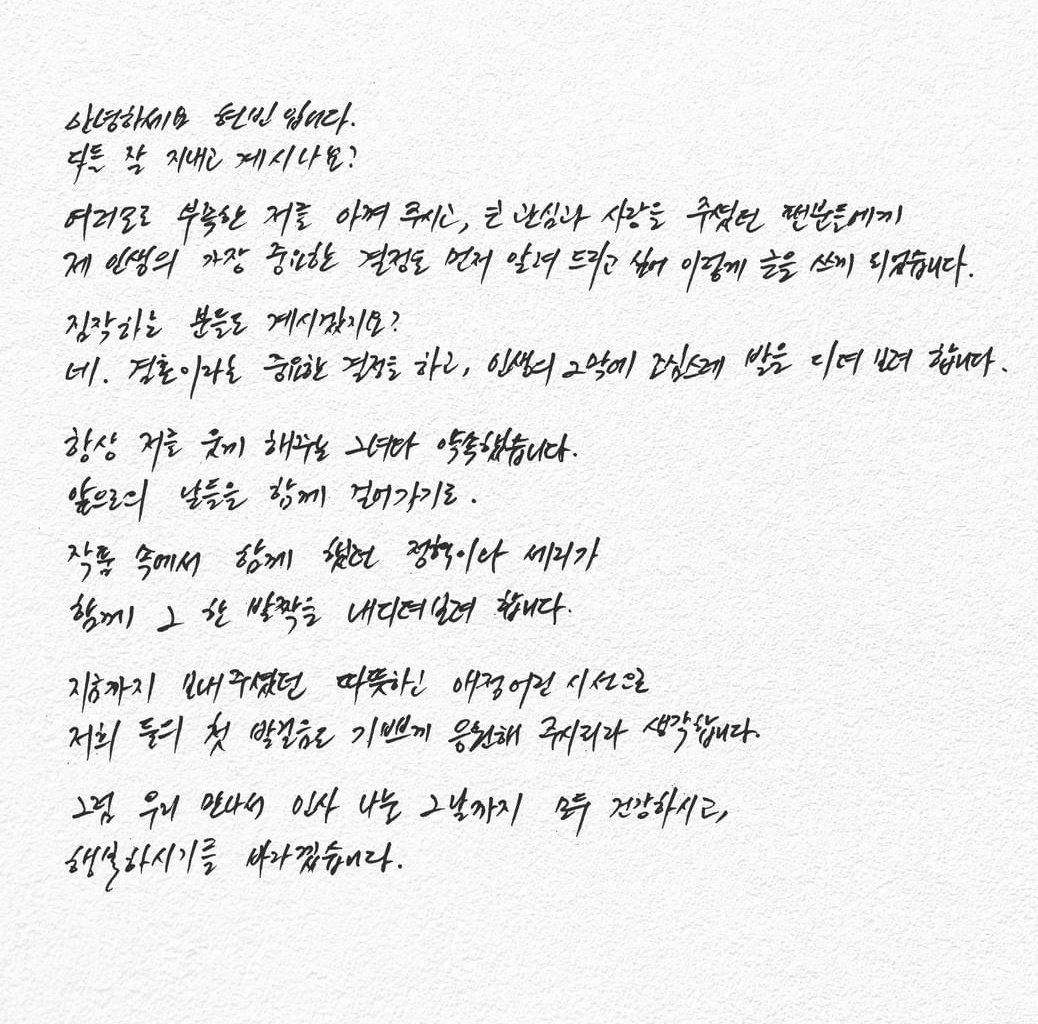 안녕하세요 현빈입니다.
다들 잘 지내고 계시나요?
여러모로 부족한 저를 아껴 주시고, 큰 관심과 사랑을 주셨던 팬분들에게
제 인생의 가장 중요한 결정을 먼저 알려 드리고 싶어 이렇게 글을 쓰게 되었습니다.
짐작하는 분들도 계시겠지요?
네. 결혼이라는 중요한 결정을 하고, 인생의 2막에 조심스레 발을 디뎌 보려 합니다.
항상 저를 웃게 해주는 그녀와 약속했습니다.
앞으로의 날들을 함께 걸어가기로.
작품 속에서 함께 했던 정혁이와 세리가
함께 그 한 발짝을 내디뎌보려 합니다.
지금까지 보내주셨던 따뜻하고 애정어린 시선으로
저희 둘의 첫 발걸음을 기쁘게 응원해 주시리라 생각합니다.
그럼 우리 만나서 인사 나눌 그날까지 모두 건강하시고,
행복하시기를 바라겠습니다.